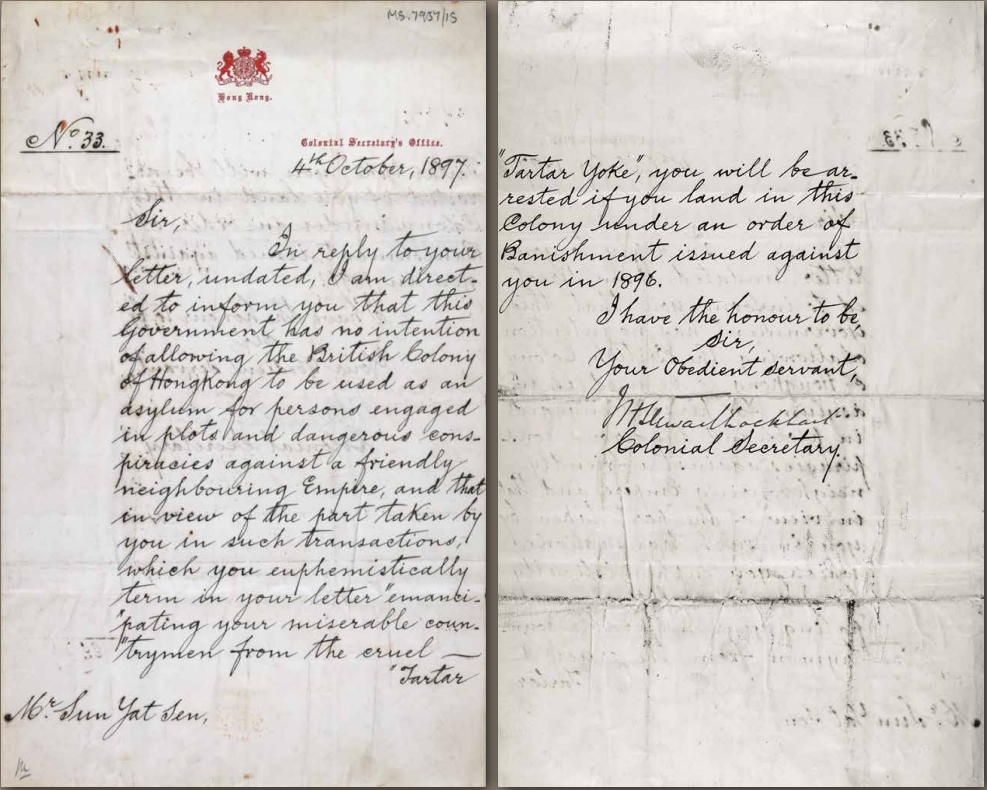 MS.7937/15
Hong Kong.
No. 33.
Colonial Secretary's Office.
4th October, 1897.
Sir,
In reply to your
letter, undated, I am direct-
ed to inform you that this
Government has no intention
of allowing the British Colony
of Hongkong to be used as an
asylum for persons engaged
in plots and dangerous cons-
piracies against a friendly
neighbouring Empire, and that
in view of the part taken by
you in such transactions,
which you euphemistically
term in your letter "emanci-
"pating your miserable coun-
"trymen from the cruel —
"Tartar
Mr. Sun Yat Sen,
"Tartar Yoke", you will be ar-
rested if you land in this
Colony under an order of
Banishment issued against
you in 1896.
I have the honour to be,
Sir,
Your Obedient servant,
Colonial Secretary.